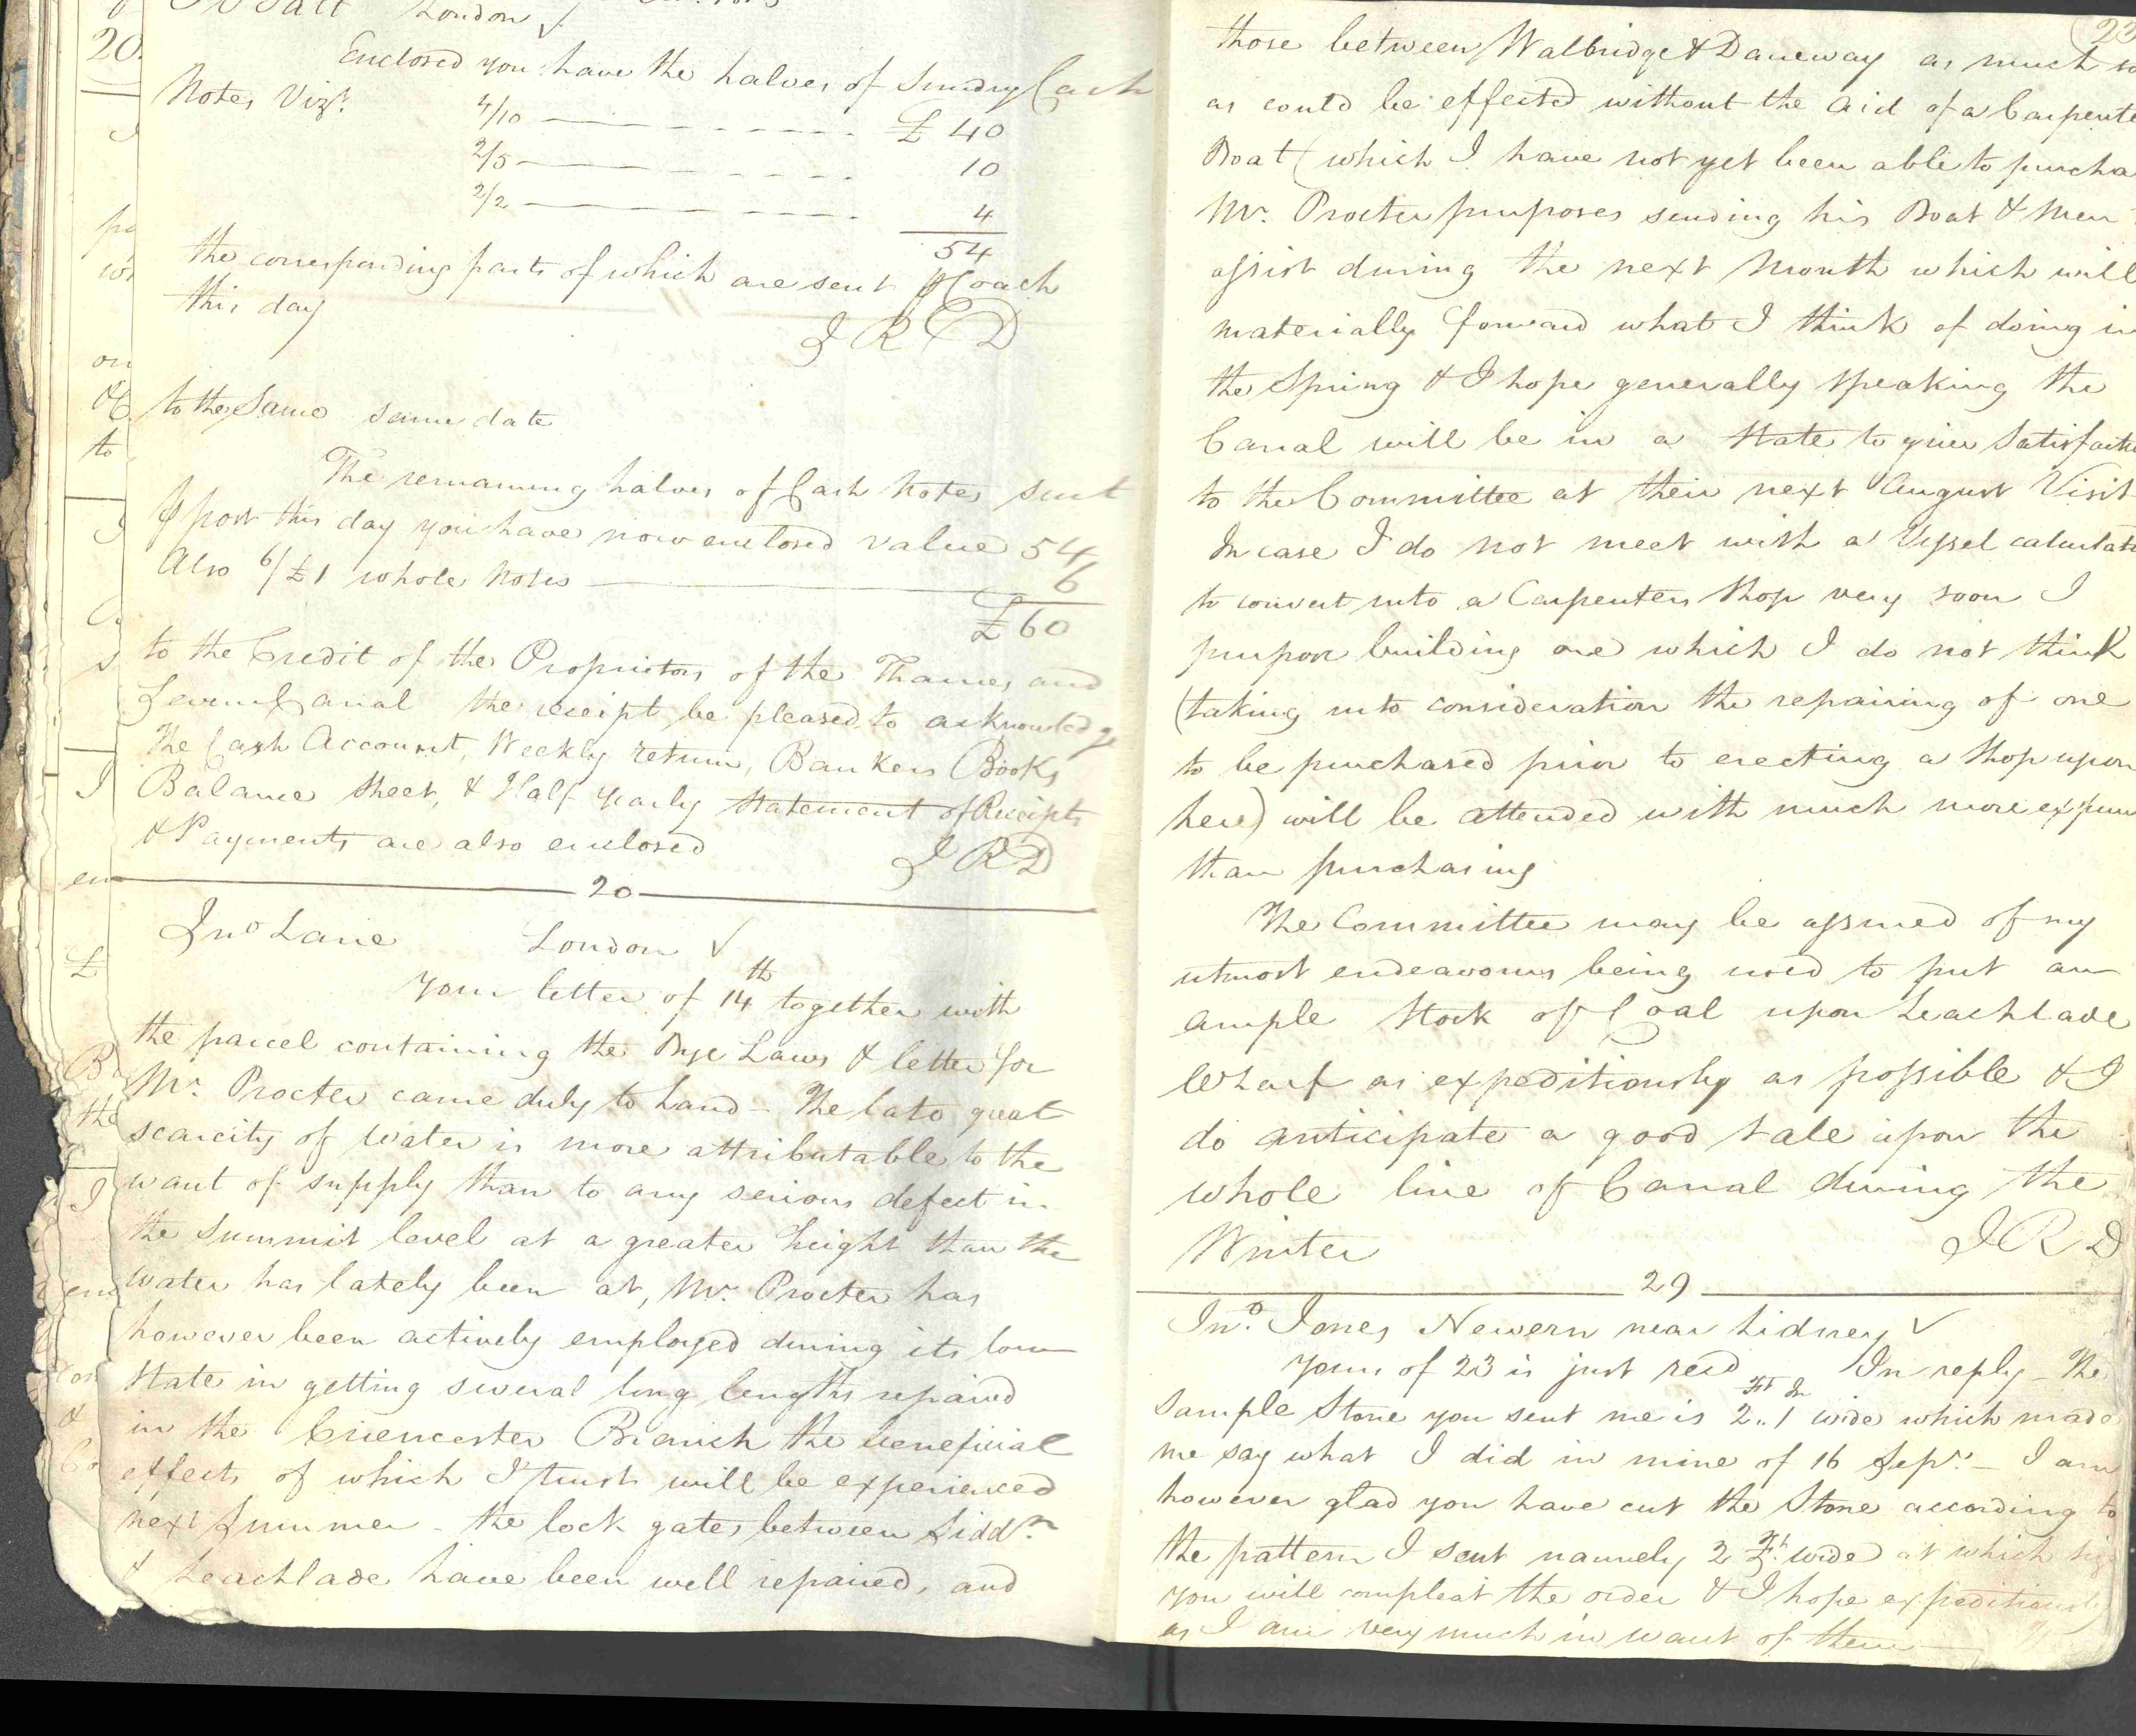 London
Enclosed you have the halves of Sundry Cash
Notes Vizt.
4/10 £ 40
2/5 10
2/2 4
54
the corresponding parts of which are sent ⅌ Coach
this day
J R D
to the Same same date
The remaining halves of Cash Notes sent
⅌ post this day you have now enclosed value 54
Also 6/£1 whole Notes 6
£60
to the Credit of the Proprietors of the Thames and
Severn Canal the receipt be pleased to acknowledge
The Cash Account, Weekly return, Bankers Books
Balance sheet, & Half yearly statement of Receipts
& Payments are also enclosed
J R D
20
Jno Lane London ✓
Your letter of 14th together with
the parcel containing the Bye Laws & letter for
Mr. Procter came duly to hand - The late great
scarcity of Water is more attributable to the
want of supply than to any serious defect in
the Summit level at a greater height than the
Water has lately been at, Mr. Procter has
however been actively employed during its low
State in getting several long lengths repaired
in the Cirencester Branch the beneficial
effects of which I trust will be experienced
next Summer - the lock gates between Siddn.
& Leachlade have been well repaired, and
23
those between Walbridge & Daneway as much so
as could be effected without the aid of a Carpente
Boat (which I have not yet been able to purcha
Mr. Procter purposes sending his Boat & Men
assist during the next Month which will
materially forward what I think of doing in
the Spring & I hope generally speaking the
Canal will be in a State to give Satisfacti
to the Committee at their next August Visit
In case I do not meet with a Vessel calculat
to convert into a Carpenters Shop very soon I
purpose building one which I do not think
(taking into consideration the repairing of one
to be purchased prior to erecting a Shop upon
here) will be attended with much more expen
than purchasing
The Committee may be assured of my
utmost endeavours being used to put an
ample Stock of Coal upon Leachlade
Wharf as expeditiously as possible & I
do anticipate a good sale upon the
whole line of Canal during the
Winter
J R D
29
Jno. Jones Newern near Lidney ✓
Yours of 23 is just recd In reply - The
Sample Stone you sent me is 2 Ft „ 1 In wide which made
me say what I did in mine of 16 Sepr. - I am
however glad you have cut the Stone according to
the pattern I sent namely 2 Ft. wide at which size
you will compleat the order & I hope expeditiously
as I am very much in want of them